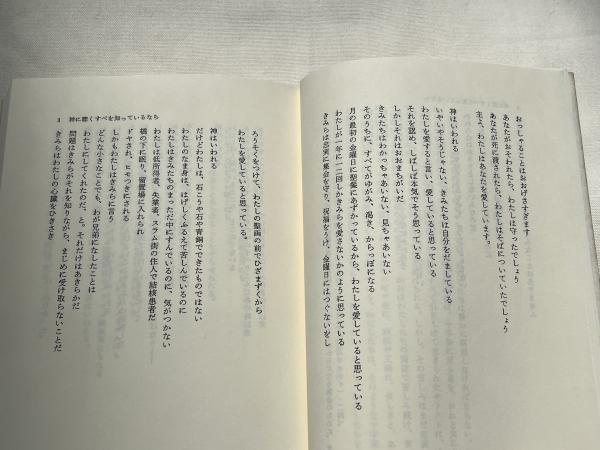 おっしゃることはおおげさすぎます
あなたがおそわれたら、わたしは守ったでしょう
あなたが死に渡されたら、わたしはそばについていたでしょう
主よ、わたしはあなたを愛しています。
神はいわれる
いやいやそうじゃない、きみたちは自分をだましている
わたしを愛すると言い、愛していると思っている
それを認め、しばしば本気でそう思っている
しかしそれはおおまちがいだ
きみたちはわかっちゃいない、見ちゃあいない
そのうちに、すべてがゆがみ、渇き、からっぽになる
月の最初の金曜日に聖餐にあずかっているから、わたしを愛していると思っている
わたしが一年に一二回しかきみらを愛さないかのように思っている
きみらは忠実に集会を守り、祝福をうけ、金曜日にはつぐないをし
3 神に聴くすべを知っているなら
ろうそくをつけて、わたしの聖画の前でひざまずくから
わたしを愛していると思っている。
神はいわれる
だけどわたしは、石こうや石や青銅でできたものではない
わたしのなま身は、はげしくふるえて苦しんでいるのに
わたしはきみたちのまっただ中にすんでいるのに、気がつかない
わたしは低所得者、失業者、スラム街の住人で結核患者だ
橋の下に眠り、留置場に入れられ
ドヤされ、ヒモつきにされる
しかもわたしはきみらに言う
どんな小さなことでも、わが兄弟になしたことは
わたしにしてくれたのだ、と。それだけはあきらかだ
問題はきみらがそれを知りながら、まじめに受け取らないことだ
きみらはわたしの心臓をひきさき